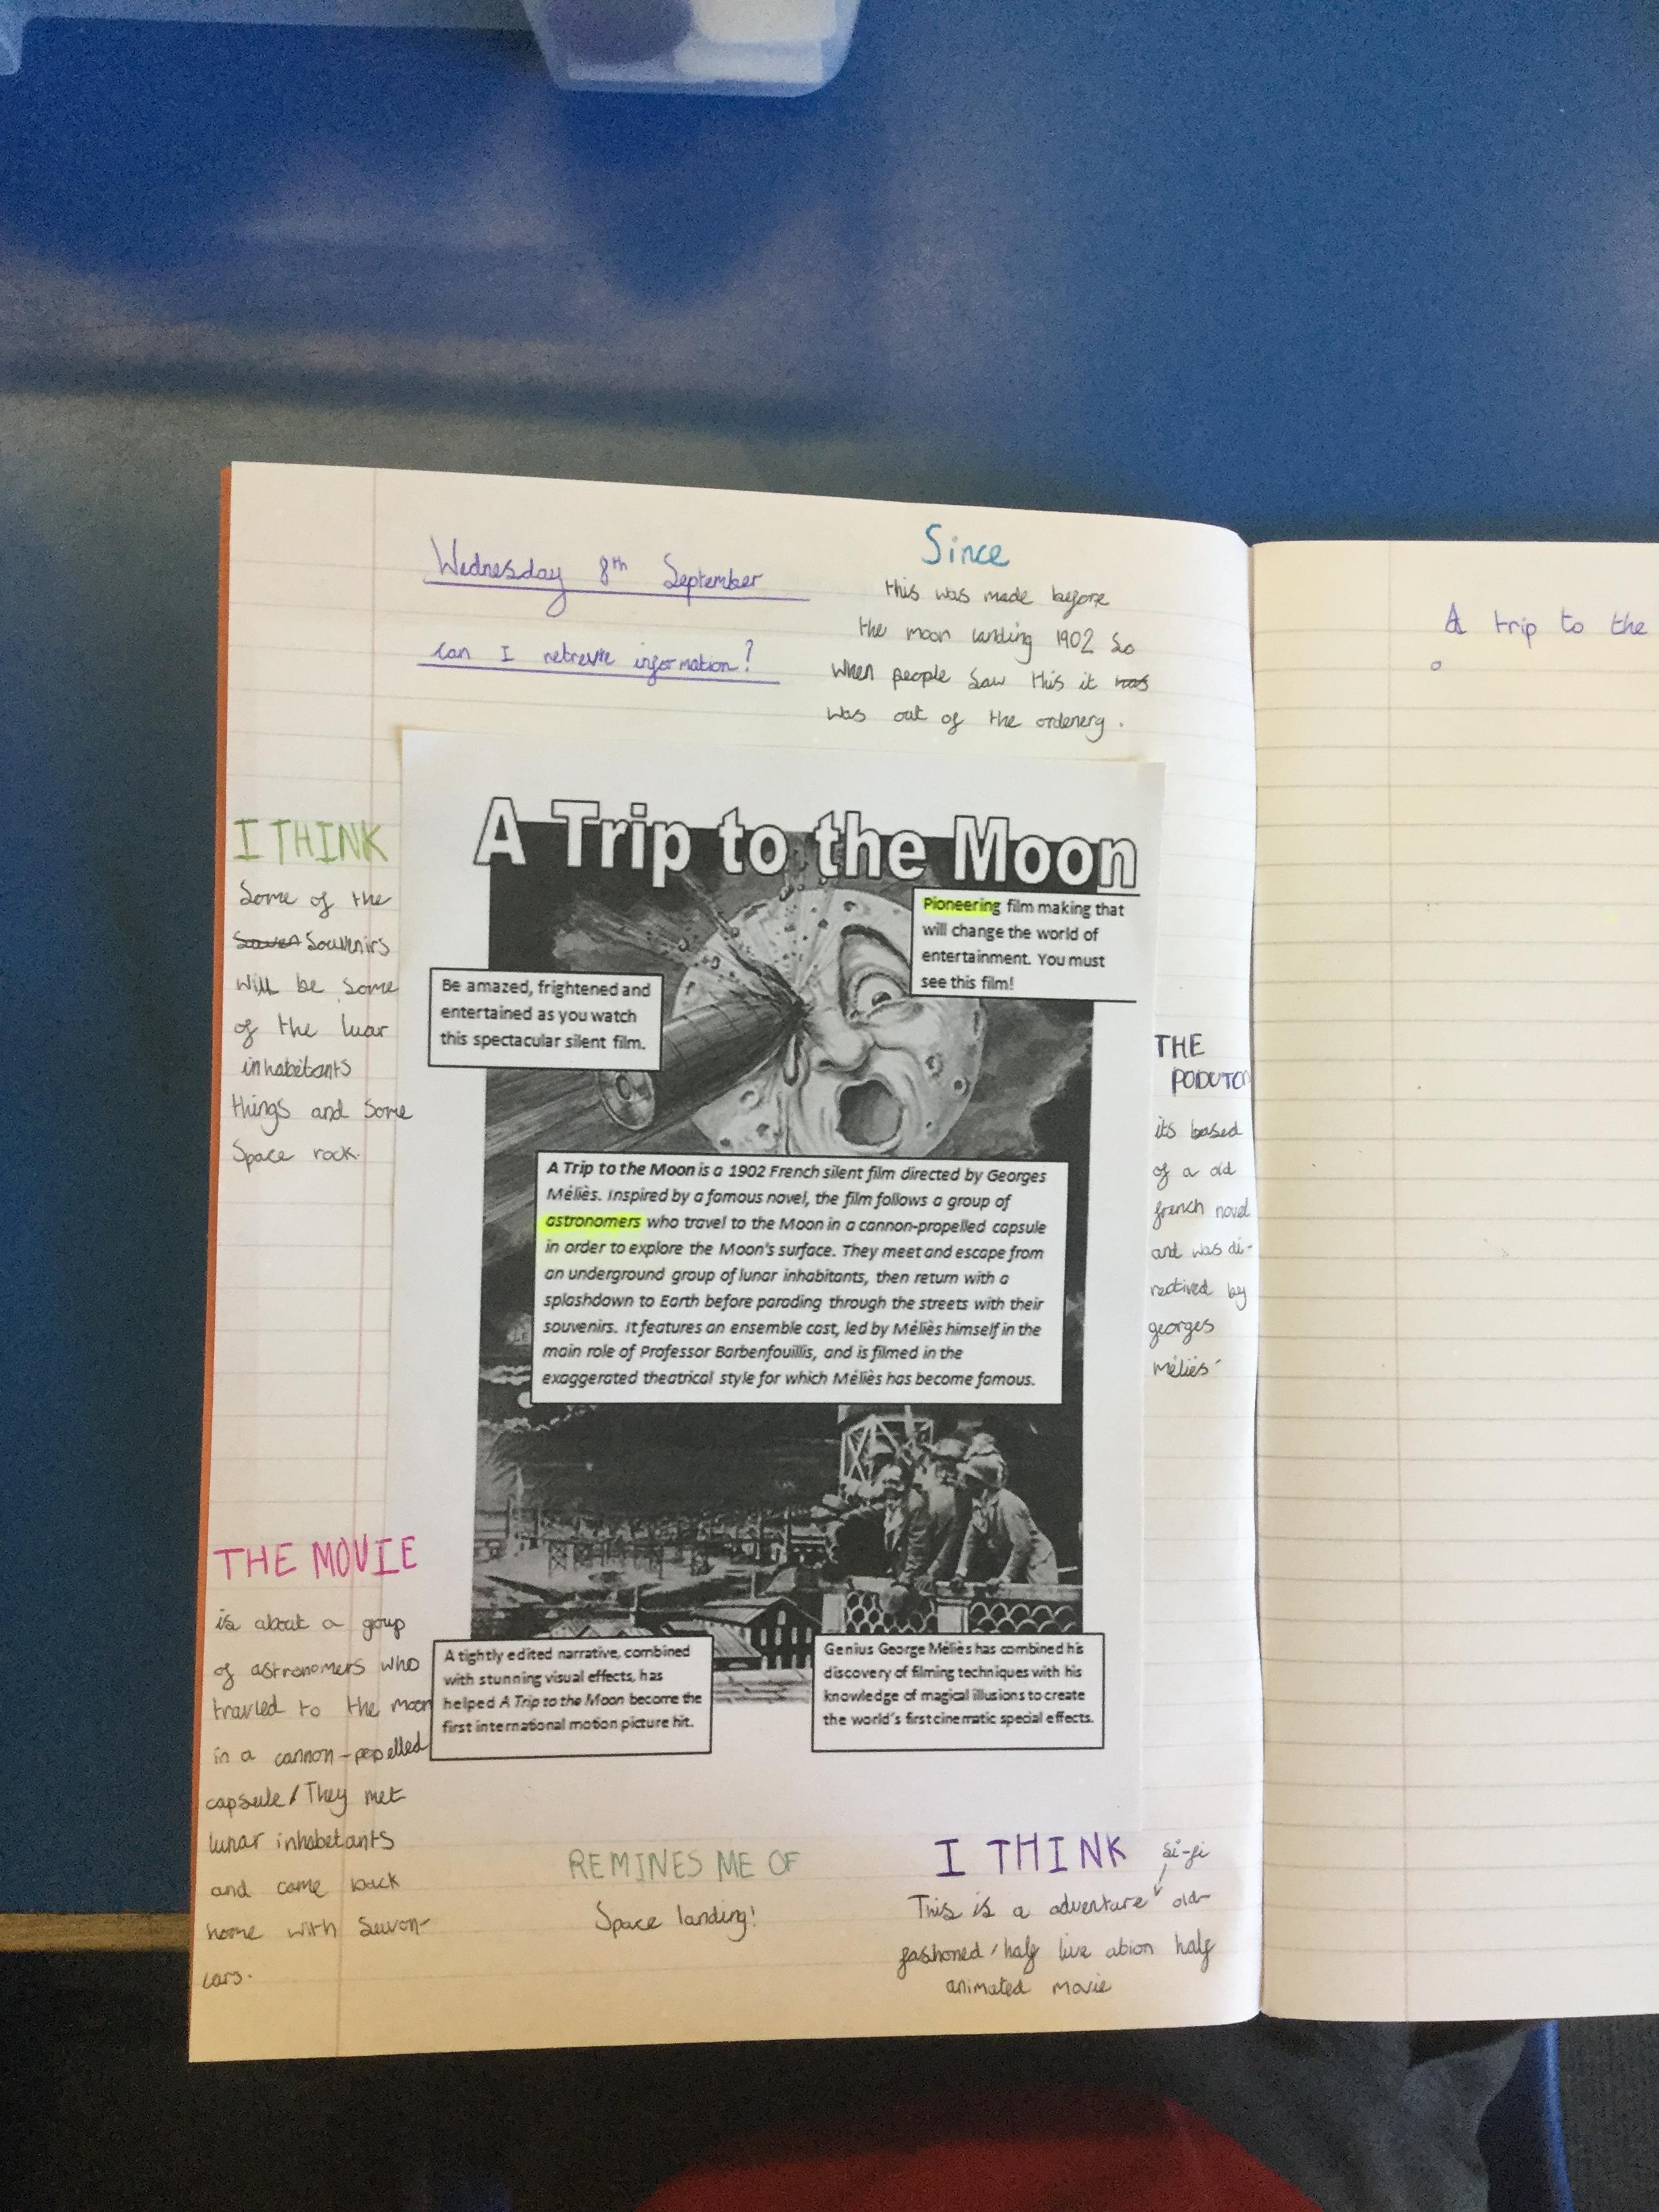 Wednesday 8th September
can I retreive information?
Since
this was made before
the moon landing 1902 so
when people saw this it was
was out of the ordenery.
I THINK
Some of the
Souvenirs
will be some
of the luar
inhabitants
things and some
Space rock.
A Trip to the Moon
Pioneering film making that
will change the world of
entertainment. You must
see this film!
Be amazed, frightened and
entertained as you watch
this spectacular silent film.
A Trip to the Moon is a 1902 French silent film directed by Georges
Méliès. Inspired by a famous novel, the film follows a group of
astronomers who travel to the Moon in a cannon-propelled capsule
in order to explore the Moon's surface. They meet and escape from
an underground group of lunar inhabitants, then return with a
splashdown to Earth before parading through the streets with their
souvenirs. It features an ensemble cast, led by Méliès himself in the
main role of Professor Barbenfouillis, and is filmed in the
exaggerated theatrical style for which Méliès has become famous.
THE
PODUTON
its based
of a old
french novel
and was di-
rectived by
georges
Méliès
THE MOVIE
is about a group
of astronomers who
travled to the moon
in a cannon-popelled
capsule / They met
lunar inhabetants
and came back
home with Suvon-
iars.
A tightly edited narrative, combined
with stunning visual effects, has
helped A Trip to the Moon become the
first international motion picture hit.
Genius George Méliès has combined his
discovery of filming techniques with his
knowledge of magical illusions to create
the world's first cinematic special effects.
REMINES ME OF
Space landing!
I THINK
si-fi
This is a adventure old-
fashoned / half live abion half
animated movie
A trip to the